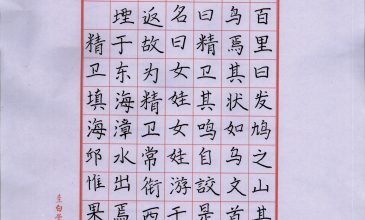 百里曰发鸠之山其
乌焉其状如乌文首
曰精卫其鸣自詨是
名曰女娃女娃游于
返故为精卫常衔西
堙于东海漳水出焉
精卫填海邱惟果